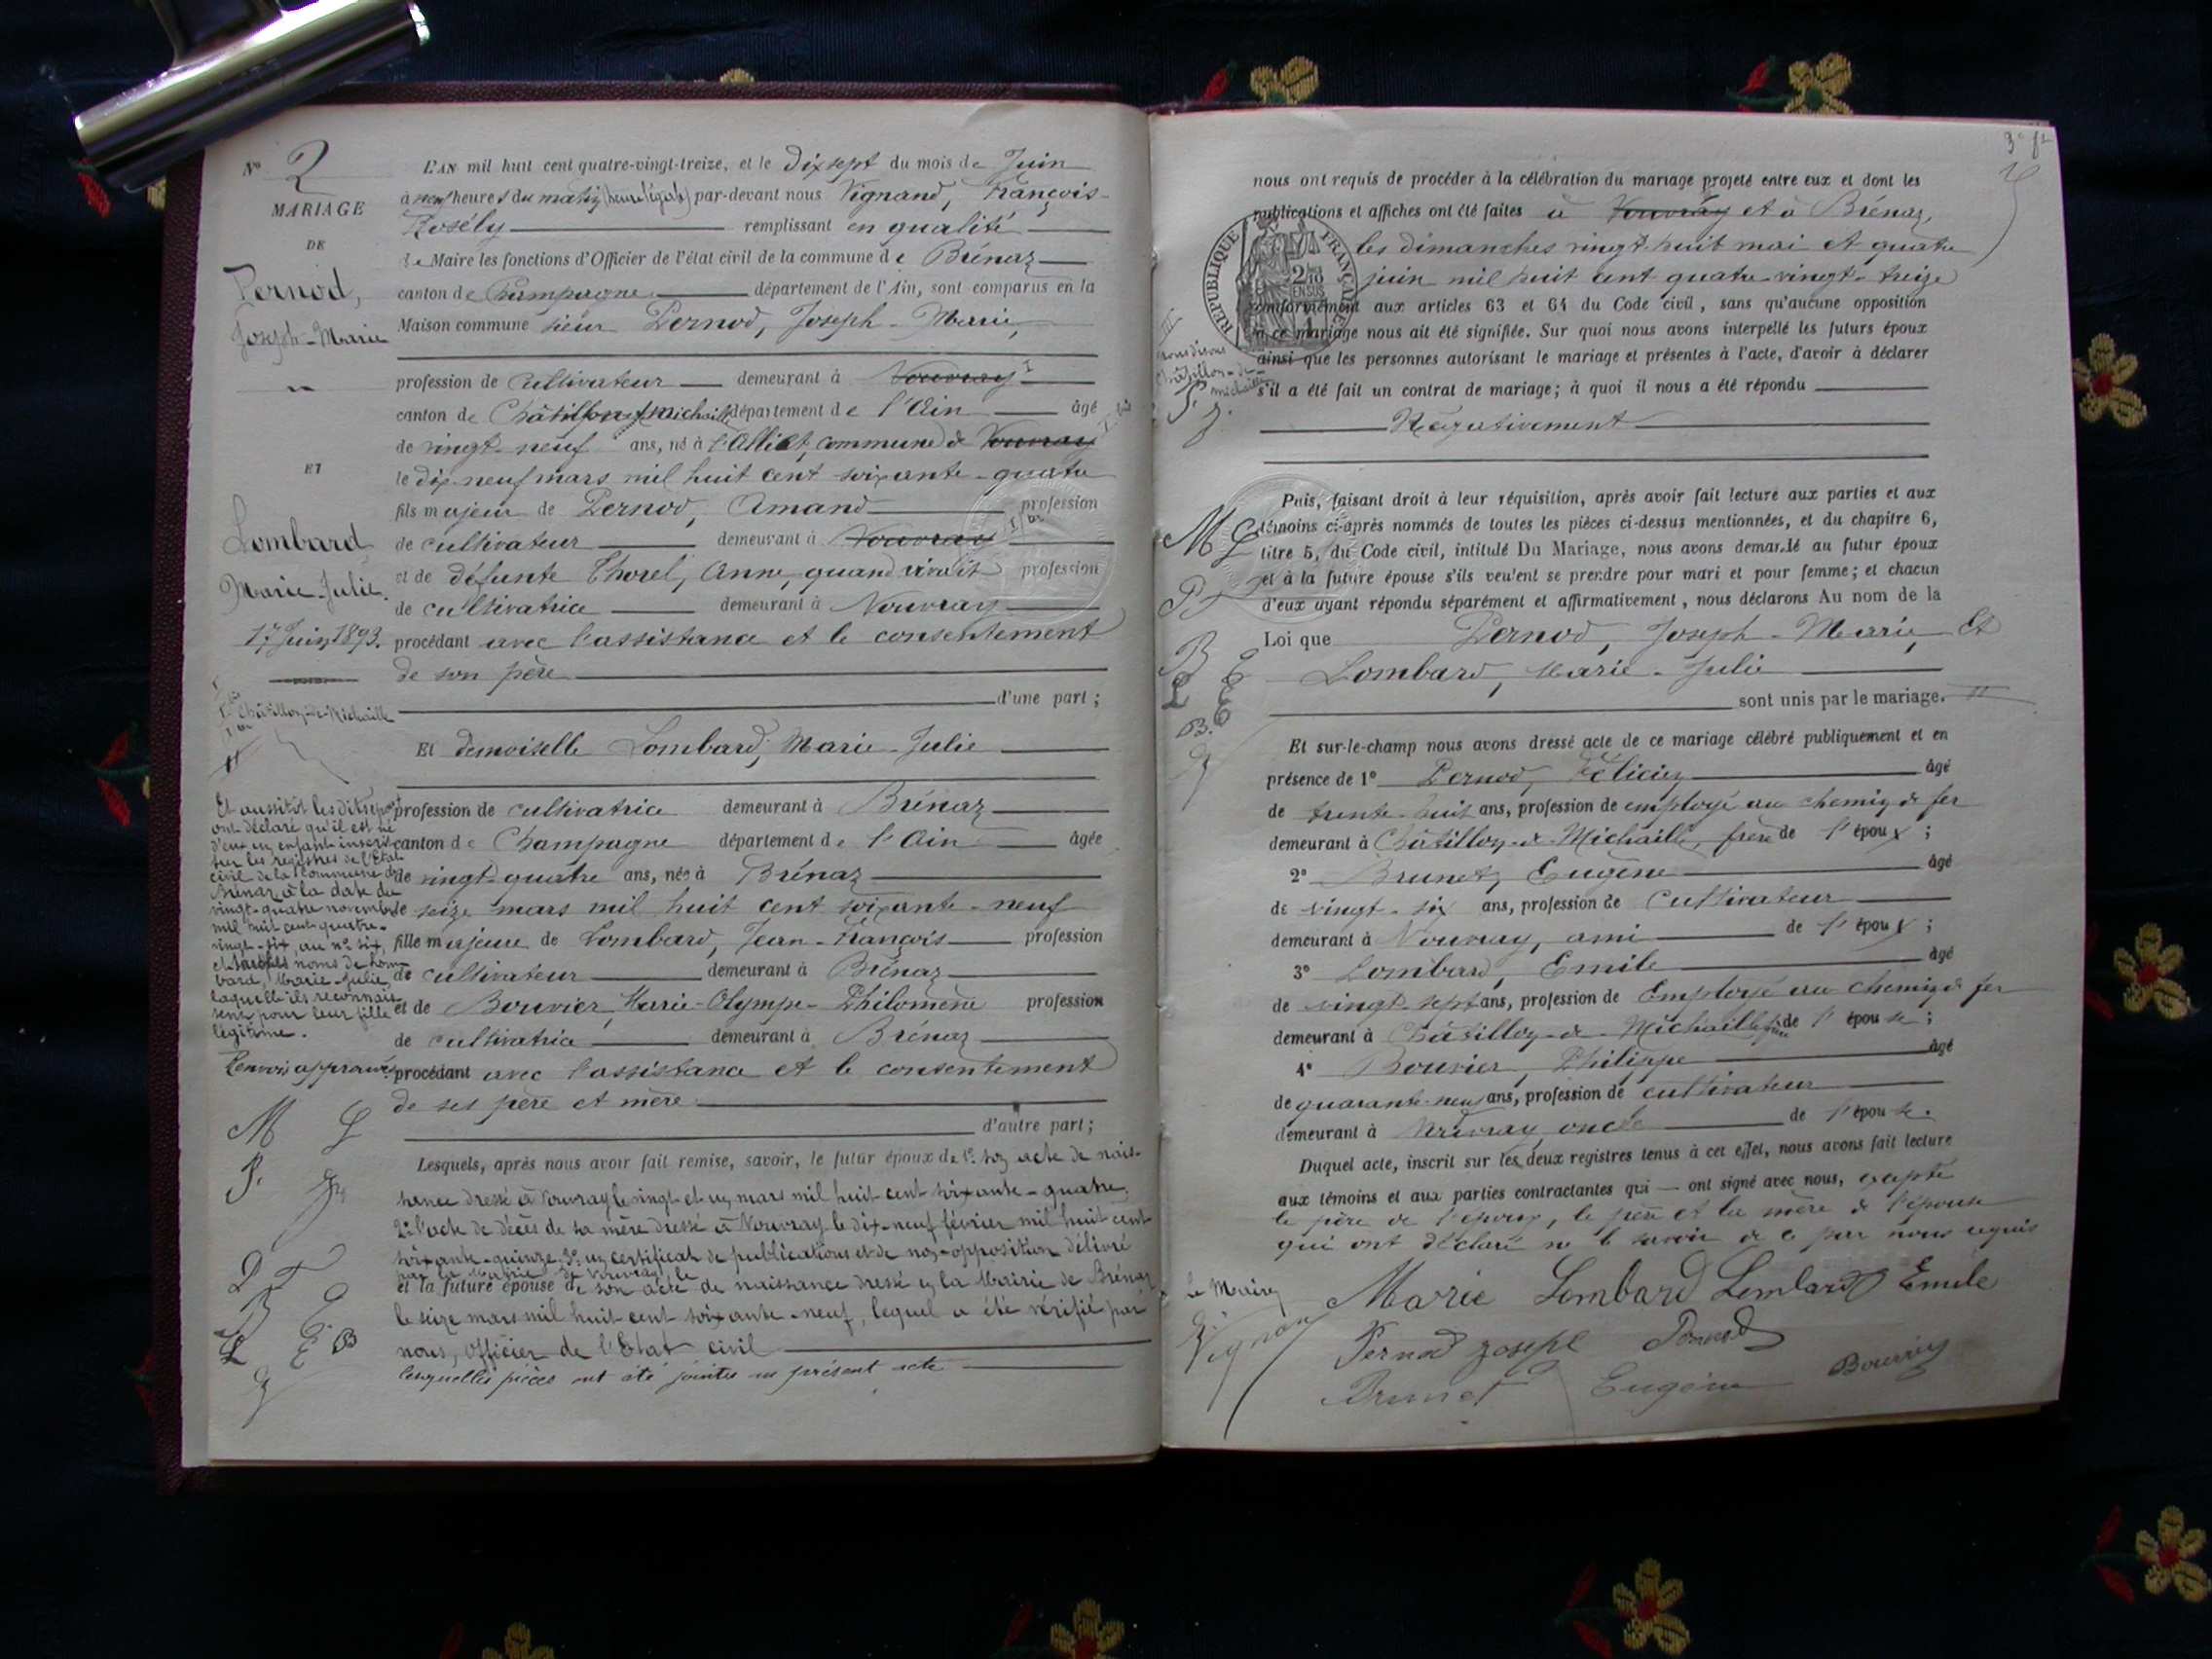 N° 2
MARIAGE
DE
Pernod,
Joseph-Marie
ET
Lombard
Marie-Julie.
17 Juin 1893.
Châtillon-de-Michaille
Et aussitôt les dits époux
ont déclaré qu'il est né
d'eux un enfant inscrit
sur les registres de l'Etat
civil de la commune de
Brénaz à la date du
vingt-quatre novembre
mil huit cent quatre-
vingt-six, au n° six,
et sous les noms de Lom-
bard, Marie-Julie,
laquelle ils reconnais-
sent pour leur fille
légitime.
Renvois approuvés
M L
P. J.
P F
B E
L E B
L'AN mil huit cent quatre-vingt-treize, et le dix sept du mois de Juin
à neuf heures du matin (heure légale) par-devant nous Vignand, François-
Rosély remplissant en qualité
de Maire les fonctions d'Officier de l'état civil de la commune de Brénaz
canton de Champagne département de l'Ain, sont comparus en la
Maison commune sieur Pernod, Joseph-Marie,
profession de Cultivateur demeurant à Vouvray I
canton de Châtillon-de-Michaille département de l'Ain âgé
de vingt-neuf ans, né à commune de Vouvray
le dix-neuf mars mil huit cent soixante-quatre
fils majeur de Pernod, Amand profession
de cultivateur demeurant à Vouvray
et de défunte Thorel, Anne, quand vivait profession
de cultivatrice demeurant à Vouvray
procédant avec l'assistance et le consentement
de son père
d'une part;
Et demoiselle Lombard, Marie-Julie
profession de cultivatrice demeurant à Brénaz
canton de Champagne département de l'Ain âgée
de vingt-quatre ans, née à Brénaz
le seize mars mil huit cent soixante-neuf
fille majeure de Lombard, Jean-François profession
de cultivateur demeurant à Brénaz
et de Bouvier, Marie-Olympe-Philomène profession
de cultivatrice demeurant à Brénaz
procédant avec l'assistance et le consentement
de ses père et mère
d'autre part;
Lesquels, après nous avoir fait remise, savoir, le futur époux de 1° son acte de nais-
sance dressé à Vouvray le vingt-et-un mars mil huit cent soixante-quatre,
2° l'acte de décès de sa mère dressé à Vouvray le dix-neuf février mil huit cent
soixante-quinze, 3° un certificat de publications et de non-opposition délivré
par la Mairie de Vouvray le
et la future épouse de son acte de naissance dressé en la Mairie de Brénaz
le seize mars mil huit cent soixante-neuf, lequel a été vérifié par
nous, Officier de l'Etat civil
lesquelles pièces ont été jointes au présent acte
3e ft
nous ont requis de procéder à la célébration du mariage projeté entre eux et dont les
publications et affiches ont été faites à Vouvray et à Brénaz,
les dimanches vingt-huit mai et quatre
juin mil huit cent quatre-vingt-treize
conformément aux articles 63 et 64 du Code civil, sans qu'aucune opposition
à ce mariage nous ait été signifiée. Sur quoi nous avons interpellé les futurs époux
ainsi que les personnes autorisant le mariage et présentes à l'acte, d'avoir à déclarer
s'il a été fait un contrat de mariage; à quoi il nous a été répondu
Négativement
RÉPUBLIQUE FRANÇAISE
2/10 EN SUS
nous disons
Châtillon-de-
Michaille
P.
J.
Puis, faisant droit à leur réquisition, après avoir fait lecture aux parties et aux
témoins ci-après nommés de toutes les pièces ci-dessus mentionnées, et du chapitre 6,
titre 5, du Code civil, intitulé Du Mariage, nous avons demandé au futur époux
et à la future épouse s'ils veulent se prendre pour mari et pour femme; et chacun
d'eux ayant répondu séparément et affirmativement, nous déclarons Au nom de la
Loi que Pernod, Joseph-Marie, Et
Lombard, Marie-Julie
sont unis par le mariage.
M L
P. F
B E
L E
B.
Et sur-le-champ nous avons dressé acte de ce mariage célébré publiquement et en
présence de 1° Pernod, Félicien âgé
de trente-huit ans, profession de employé au chemin de fer
demeurant à Châtillon-de-Michaille, frère de l'époux;
2° Brunet, Eugène âgé
de vingt-six ans, profession de Cultivateur
demeurant à Vouvray, ami de l'époux;
3° Lombard, Emile âgé
de vingt-sept ans, profession de Employé au chemin de fer
demeurant à Châtillon-de-Michaille frère de l'épouse;
4° Bouvier, Philippe âgé
de quarante-neuf ans, profession de cultivateur
demeurant à Vouvray, oncle de l'épouse.
Duquel acte, inscrit sur les deux registres tenus à cet effet, nous avons fait lecture
aux témoins et aux parties contractantes qui ont signé avec nous, excepté
le père de l'époux, le père et la mère de l'épouse
qui ont déclaré ne le savoir de ce par nous requis
le Maire
Vignand
Marie Lombard Lombard Emile
Pernod Joseph Pernod
Brunet Eugène Bouvier